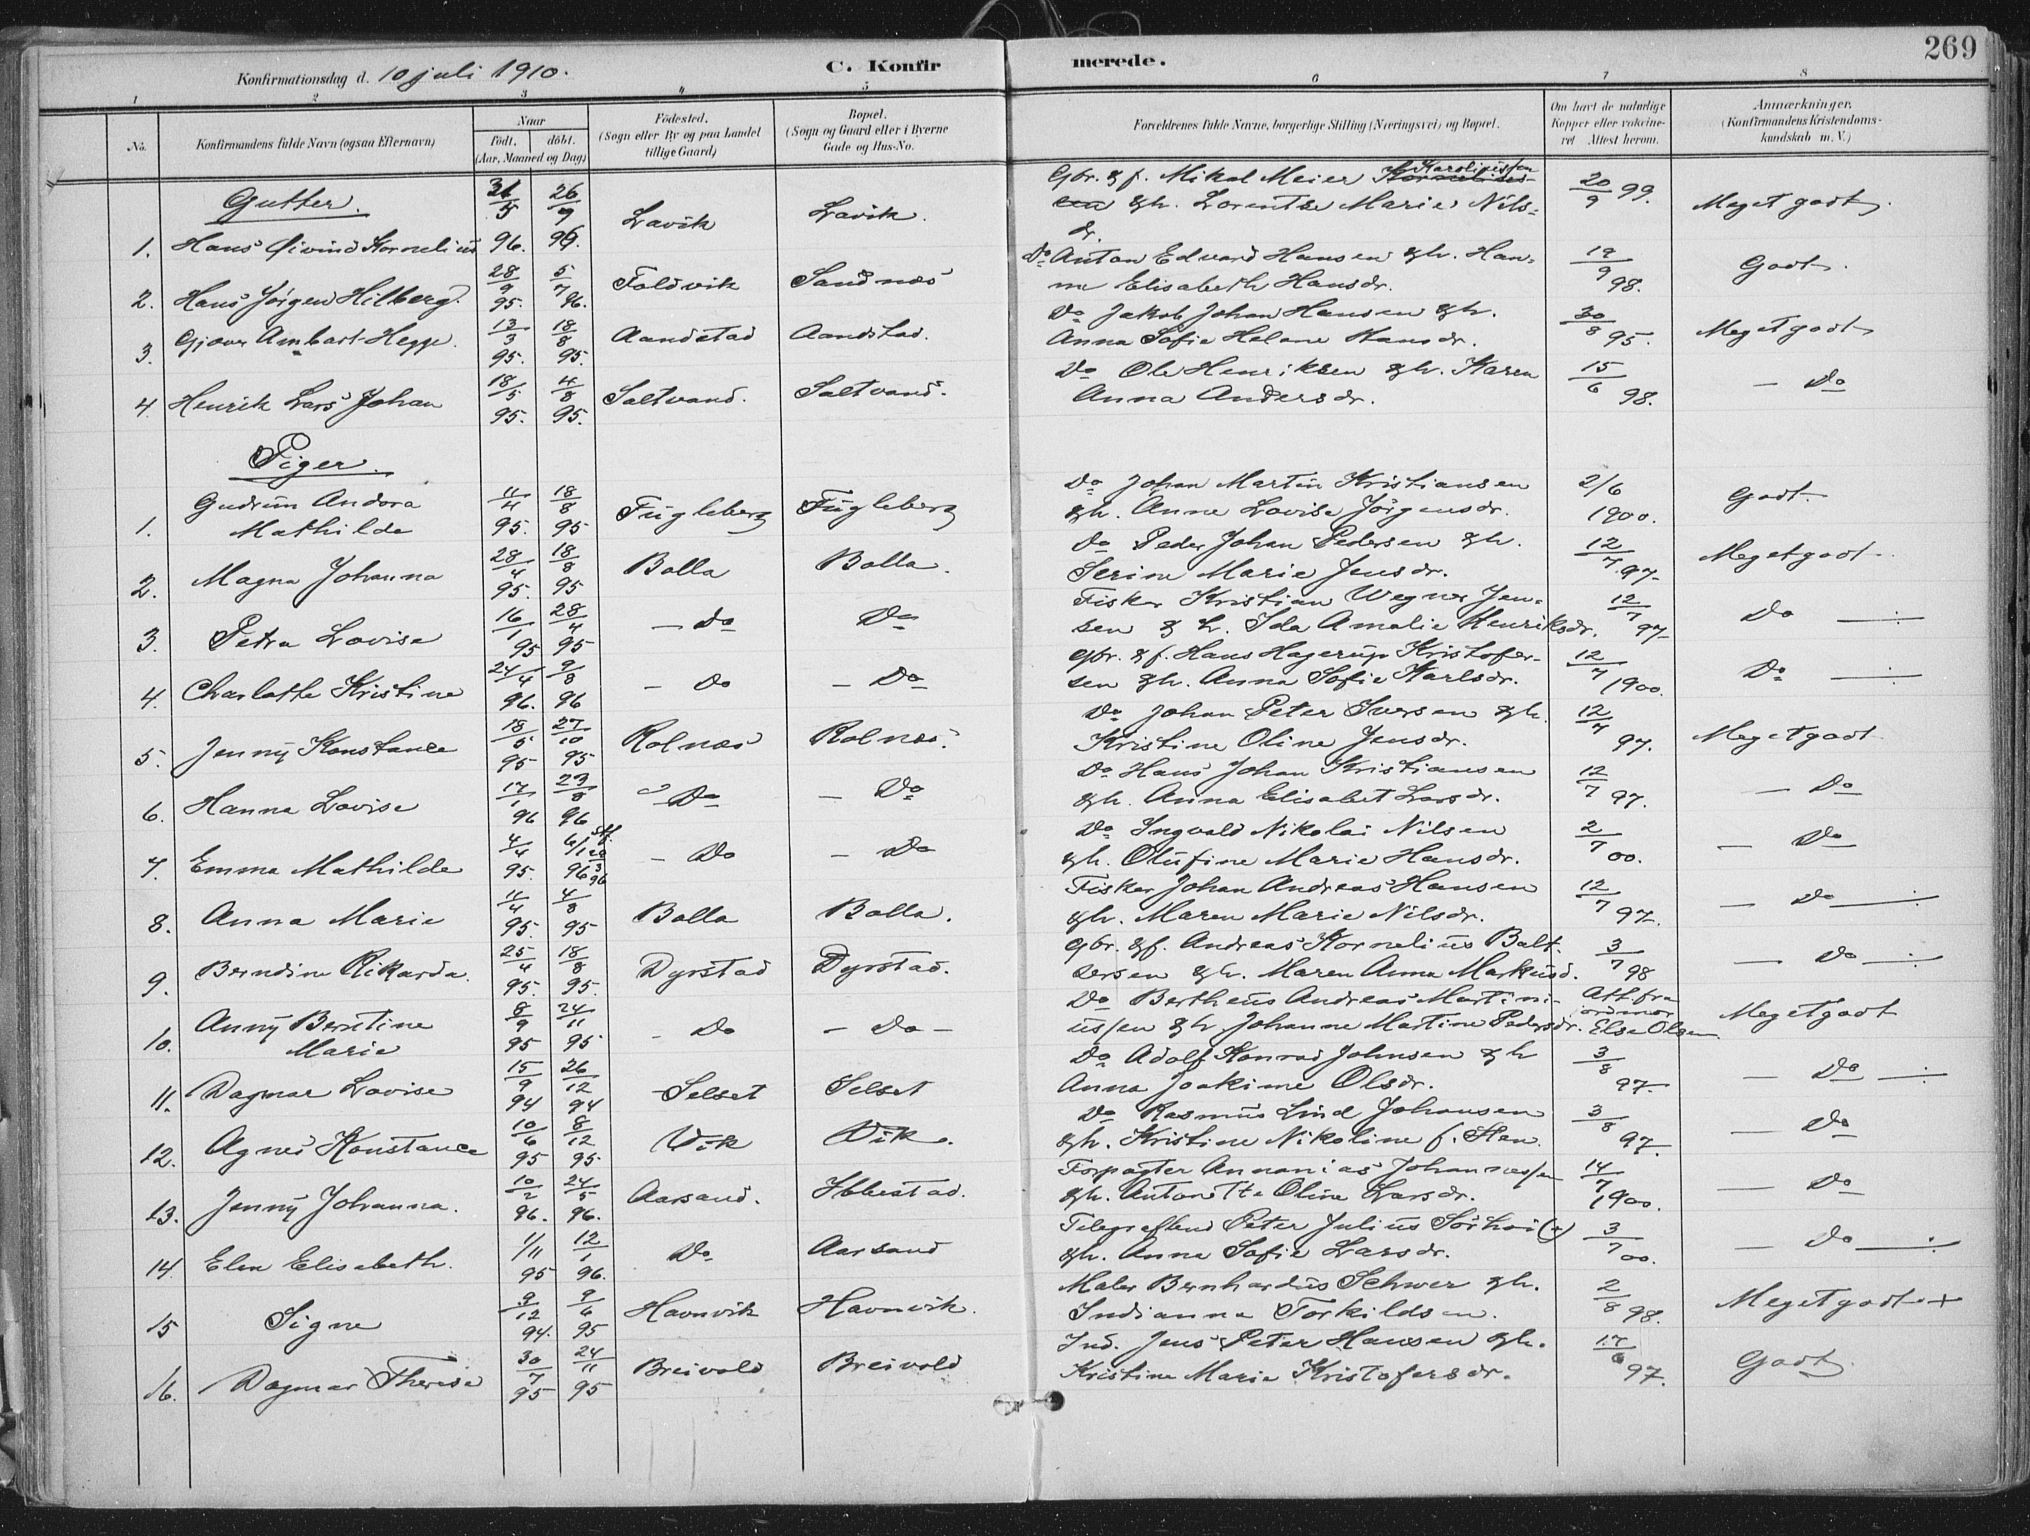 269
Konfirmationsdag d. 10 juli 1910.
C. Konfirmerede.
1 2 3 4 5 6 7 8
No.
Konfirmandens fulde Navn (ogsaa Efternavn)
Naar
födt. döbt.
(Aar, Maaned og Dag)
Födested.
(Sogn eller By og paa Landet
tillige Gaard)
Bopæl.
(Sogn og Gaard eller i Byerne
Gade og Hus-No.
Forældrenes fulde Navne, borgerlige Stilling (Næringsvei) og Bopæl.
Om havt de naturlige
Kopper eller vaccine-
ret Attest herom.
Anmærkninger.
(Konfirmandens Kristendoms-
kundskab m. V.)
Gutter.
1. Hans Øivind Kornelius 31/5 96. 26/9 96. Lavik Lavik. Gbr. & f. Mikal Meier Karolius/sen
& h. Lorentse Marie Nils-
dr. 20/9 99. Meget godt.
2. Hans Jörgen Hilberg. 28/9 95. 5/7 96. Foldvik Sandnæs Do Anton Edvard Hansen & h. Han-
na Elisabeth Hansdr. 19/9 98. Godt.
3. Gjæver Ambart Hegge. 13/3 95. 18/8 95. Aandstad Aandstad. Do Jakob Johan Hansen & h.
Anna Sofie Helene Hansdr. 30/8 95. Meget godt
4. Henrik Lars Johan 18/5 95. 4/8 95. Saltvand. Saltvand. Do Ole Henriksen & h. Karen
Anna Andersdr. 15/6 98. — Do
Piger.
1. Gudrun Andora
Mathilde 4/4 95. 18/8 95 Fugleberg Fugleberg Do Johan Martin Kristiansen
& h. Anne Lovise Jörgensdr. 2/6 1900. Godt.
2. Magna Johanna 28/4 95. 18/8 95 Bolla Bolla. Do Peder Johan Pedersen & h.
Serine Marie Jensdr. 12/7 97. Meget godt.
3. Petra Lovise 16/1 95 28/4 95 — Do Do Fisker Kristian Wegner Jen-
sen & h. Ida Amalie Henriksdr. 12/7 97. Do —
4. Charlotte Kristine 24/4 96. 9/8 96 — Do — Do Gbr. & f. Hans Hagerup Kristofer-
sen & h. Anna Sofie Karlsdr. 12/7 1900. Do —
5. Jenny Konstance 18/5 95 27/10 95 Rolnæs Rolnæs. Do Johan Peter Iversen & h.
Kristine Oline Jensdr. 12/7 97. Meget godt
6. Hanna Lovise 17/1 96 23/8 96 — Do — Do Do Hans Johan Kristiansen
& h. Anna Elisabet Larsdr. 12/7 97. — Do
7. Emma Mathilde 4/4 95. 6/1 96 — Do — Do Do Ingvald Nikolai Nilsen
& h. Olufine Marie Hansdr. 2/7 00. — Do
8. Anna Marie 4/4 95. 4/8 95 Bolla Bolla. Fisker Johan Andreas Hansen
& h. Maren Marie Nilsdr. 12/7 97. — Do —
9. Berndine Rikarda. 25/4 95. 18/8 95. Dyrstad Dyrstad. Gbr. & f. Andreas Kornelius Balt-
sersen & h. Maren Anna Markusd. 3/7 98 — Do —
10. Anny Berntine
Marie 8/9 95 24/11 95 — Do — Do — Do Bertheus Andreas Martini-
ussen & h Johanne Martine Pedersdr. Att. fra
ordmor
Else Olsen Meget godt
11. Dagmar Lovise 15/9 94 26/12 94 Selset Selset Do Adolf Konrad Johnsen & h
Anna Joakime Olsdr. 3/8 97. — Do —
12. Agnes Konstance 10/6 95 8/12 95. Vik Vik. Do Rasmus Lind Johansen
& h. Kristine Nikoline f. Sten. 3/8 97. — Do
13. Jenny Johanna. 10/2 96. 24/5 96. Aarsand. Ibbestad. Forpagter Annanias Johannessen
& h. Antonette Oline Larsdr. 14/7 1900. — Do
14. Elen Elisabeth. 1/11 95 12/1 96. Do Aarsand Telegrafbud Peter Julius Sörhoi (?)
& h. Anna Sofie Larsdr. 3/7 00. — Do —
15 Signe 9/12 94. 9/6 95 Havnvik Havnvik. Maler Bernhardus Schwer & h.
Indianna Torkildsen. 2/8 98. Meget godt +
16. Dagmar Therese 30/7 95 24/11 95 Breivold Breivold Ind. Jens Peter Hansen & h.
Kristine Marie Kristofersdr. 17/6 97. Godt.